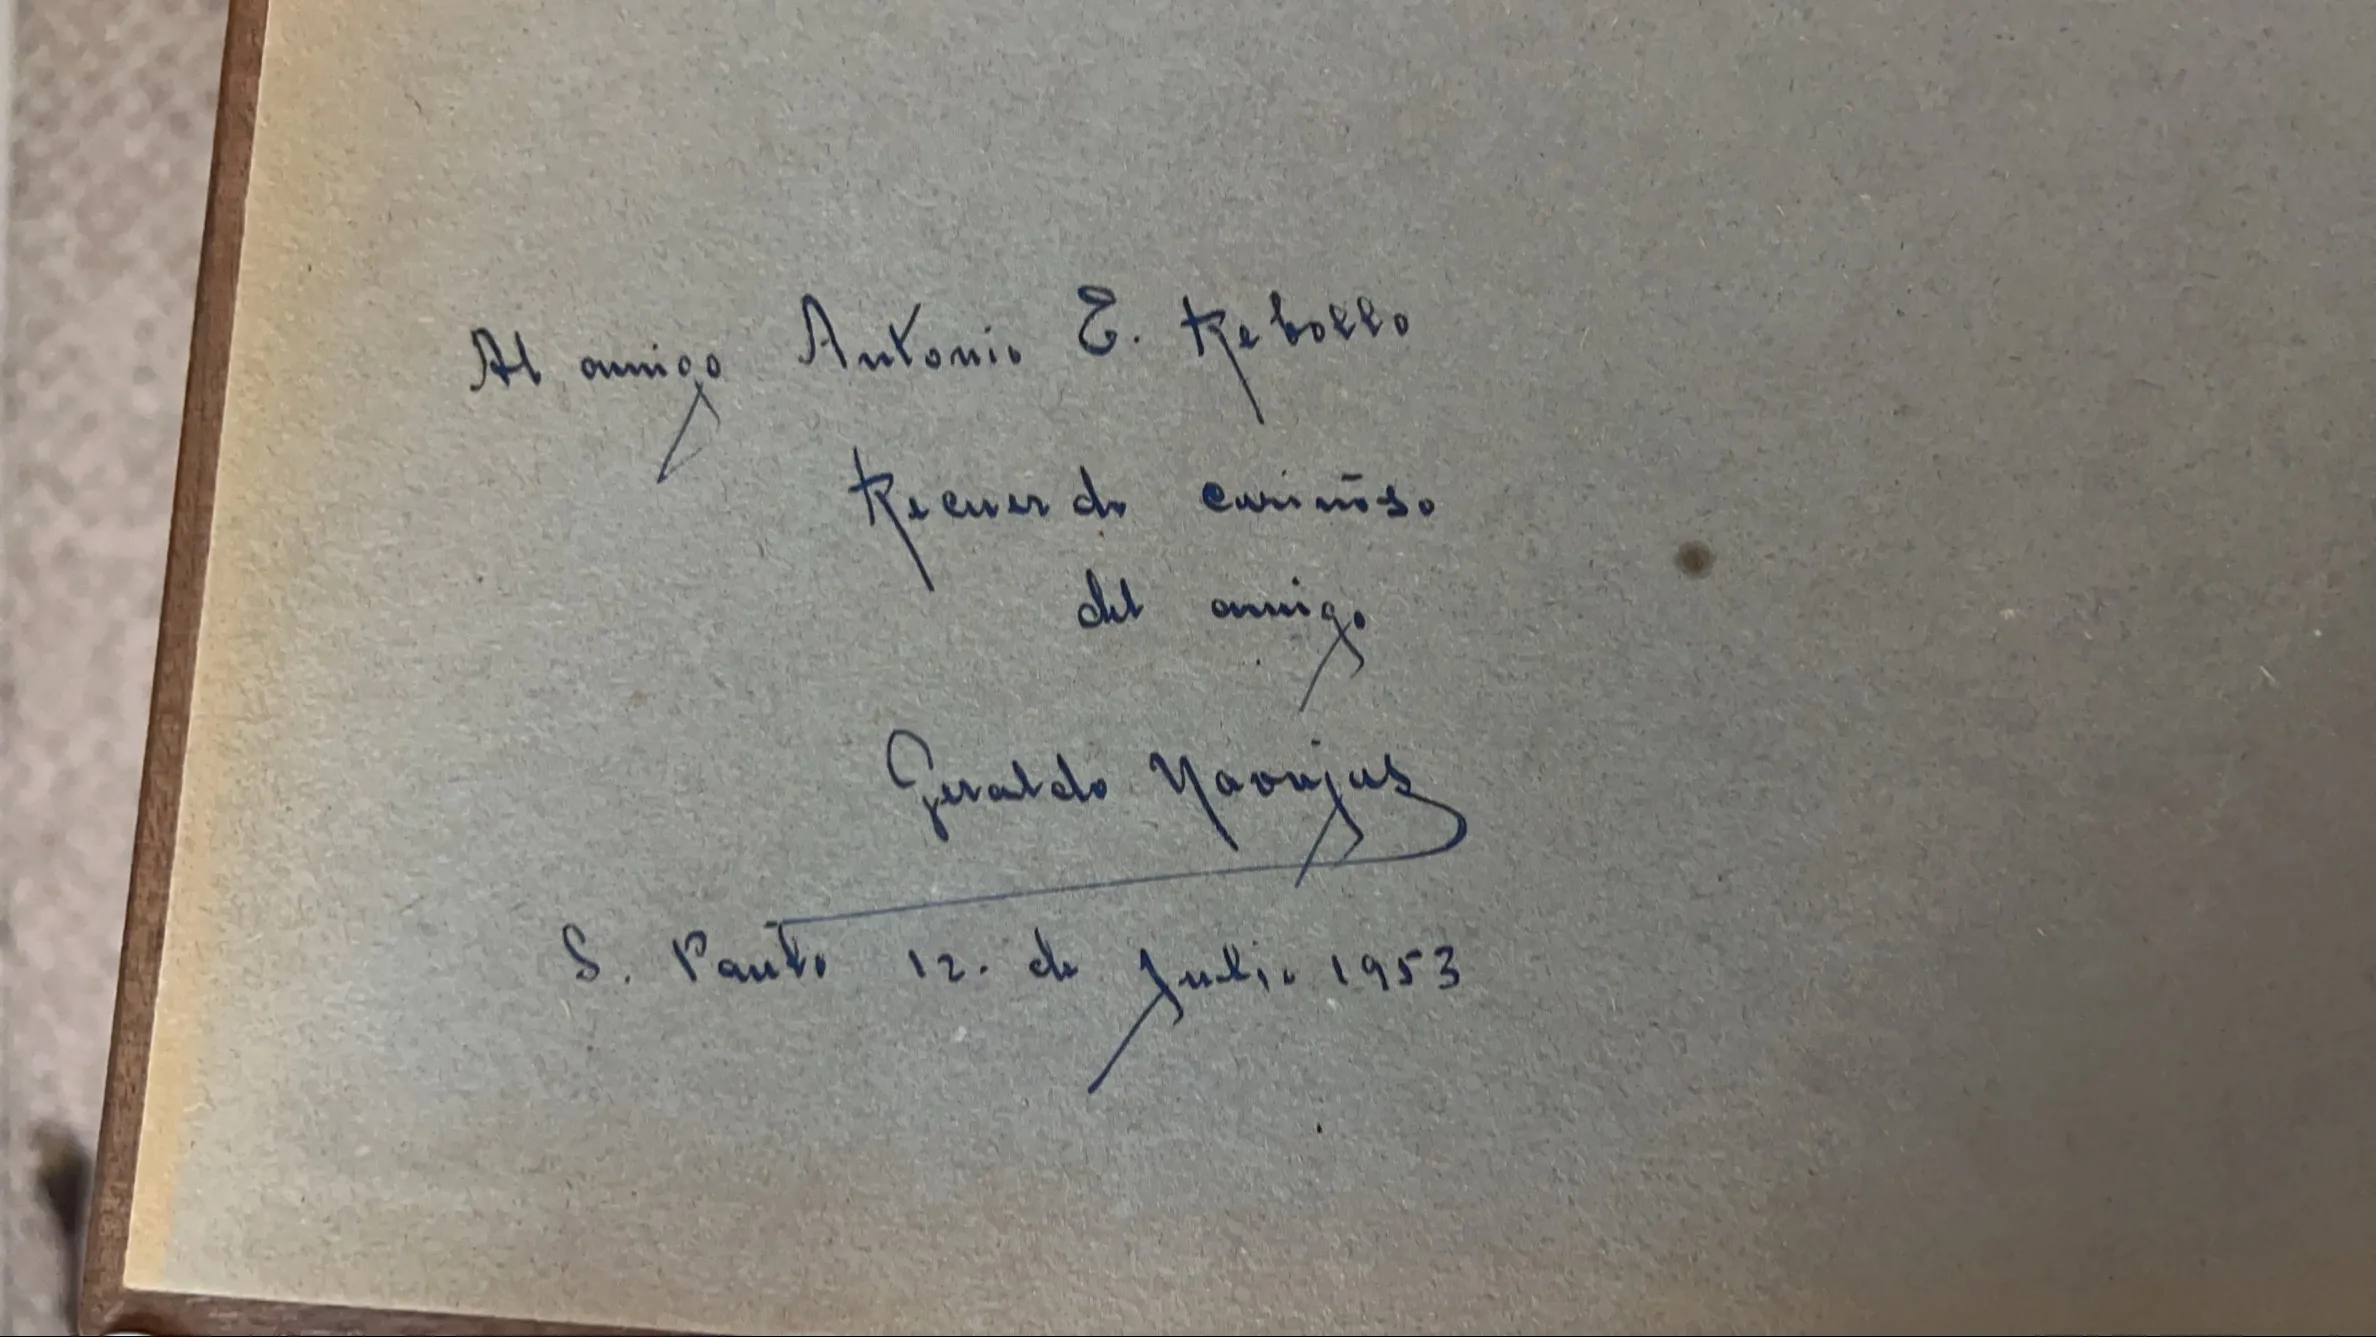 Al amigo Antonio E. Rebollo
Recuerdo cariñoso
del amigo
Geraldo Navajas
S. Paulo 12. de Julio 1953